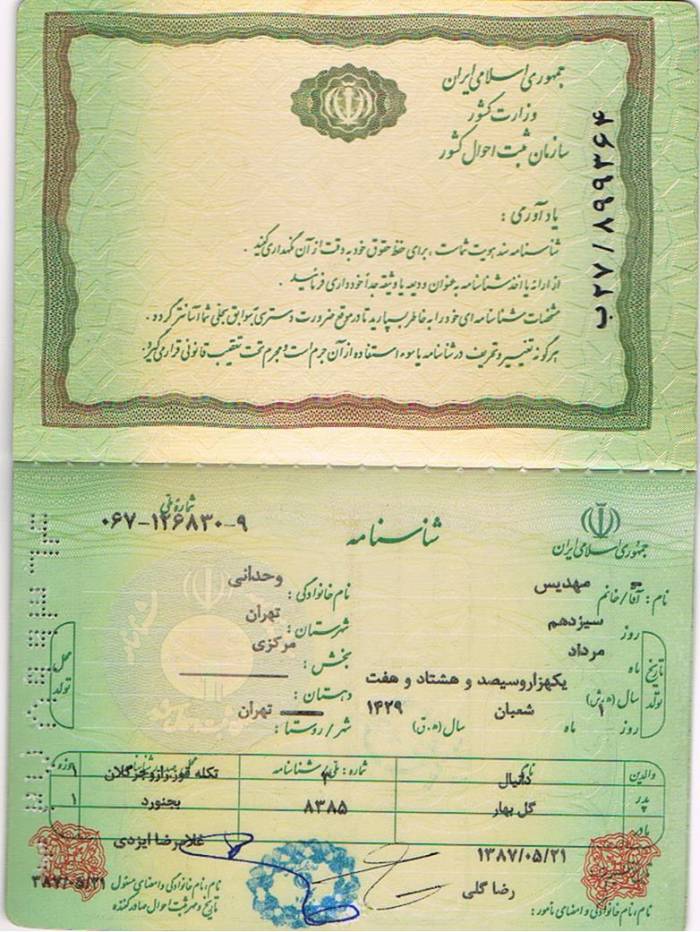 جمهوری اسلامی ایران
وزارت کشور
سازمان ثبت احوال کشور
ب۲۷/۸۹۹۳۶۴
یادآوری :
شناسنامه سند هویت شماست ، برای حفظ حقوق خود به دقت از آن نگهداری کنید .
از ارائه یا اخذ شناسنامه به عنوان ودیعه یا وثیقه جداً خودداری فرمائید .
مشخصات شناسنامه ای خود را به خاطر بسپارید تا در موقع ضرورت دسترسی به سوابق سجلی شما آسانتر گردد .
هر گونه تغییر و تحریف در شناسنامه یا سوء استفاده از آن جرم است و مجرم تحت تعقیب قانونی قرار می گیرد .
جمهوری اسلامی ایران
شناسنامه
شماره ملی
۰۶۷-۱۲۶۸۳۰-۹
نام : آقا/خانم مهدیس
نام خانوادگی : وحدانی
تاریخ تولد
روز سیزدهم
ماه مرداد
سال (ه.ش) یکهزاروسیصد و هشتاد و هفت
روز ۱ ماه شعبان سال (ه.ق) ۱۴۲۹
محل تولد
شهرستان : تهران
بخش : مرکزی
دهستان :
شهر/روستا : تهران
والدین نام شماره : ملی/شناسنامه
پدر دانیال ۲ تکله قوز رازوجرگلان ۱
مادر گل بهار ۸۳۸۵ بجنورد ۱
۱۳۸۷/۰۵/۲۱
رضا گلی
نام، نام خانوادگی و امضای مامور :
غلامرضا ایزدی
۱۳۸۷/۰۵/۲۱
نام، نام خانوادگی و امضای مسئول
تاریخ و مهر ثبت احوال صادر کننده :